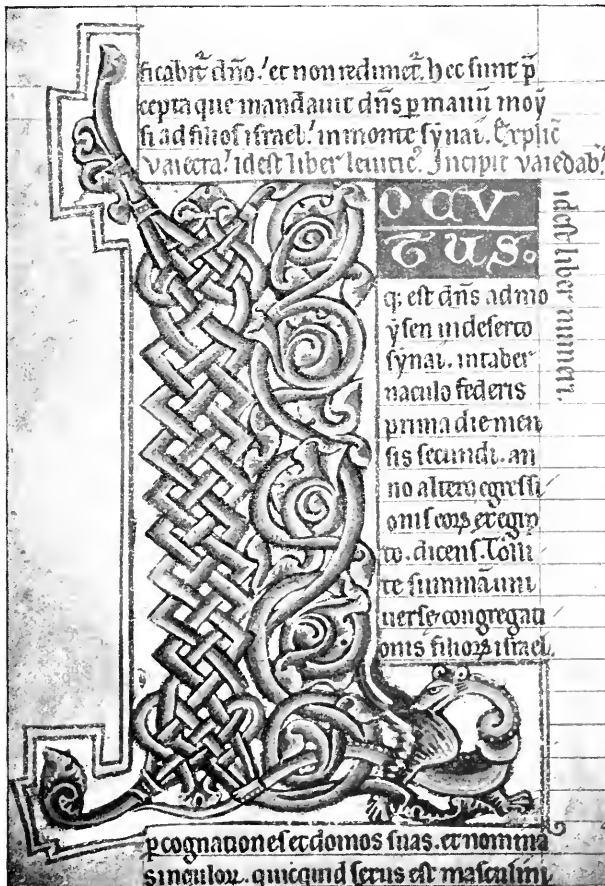 ficabit̄ dn̄o.' et non redimet̄. hec sunt p̄
cepta que mandauit dn̄s p manū moy
si ad filios israel.' in monte synai. Explic̄
vaiecra.' id est liber leuitic̄. Incipit vaiedab̄.
id est liber numeri.
L
OCV
TUS.
q; est dn̄s ad mo
ysen in deserto
synai. in taber
naculo federis
prima die men
sis secundi. an
no altero egressi
onis eoꝝ ex egip
to. dicens. Tolli
te summā uni
uerse congregati
onis filioꝝ israel
p cognationes et domos suas. et nomina
singuloꝝ. quicquid sexus est masculini